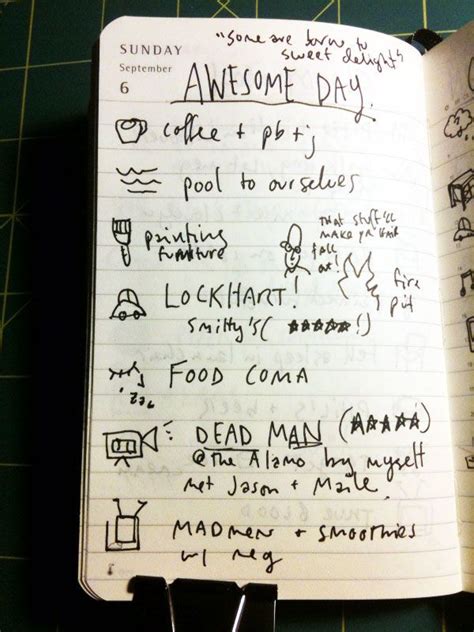 "some are born to
sweet delight"
SUNDAY
September
6
AWESOME DAY.
coffee + pb + j
pool to ourselves
painting
furniture
THAT STUFF'LL
MAKE YR HAIR
fall
out!
fire
pit
LOCKHART!
Smitty's (★★★★★!)
FOOD COMA
ZZZ
DEAD MAN (★★★★★)
@The Alamo by myself
met Jason + Maile
MADMEN + SMOOTHIES
w/ meg